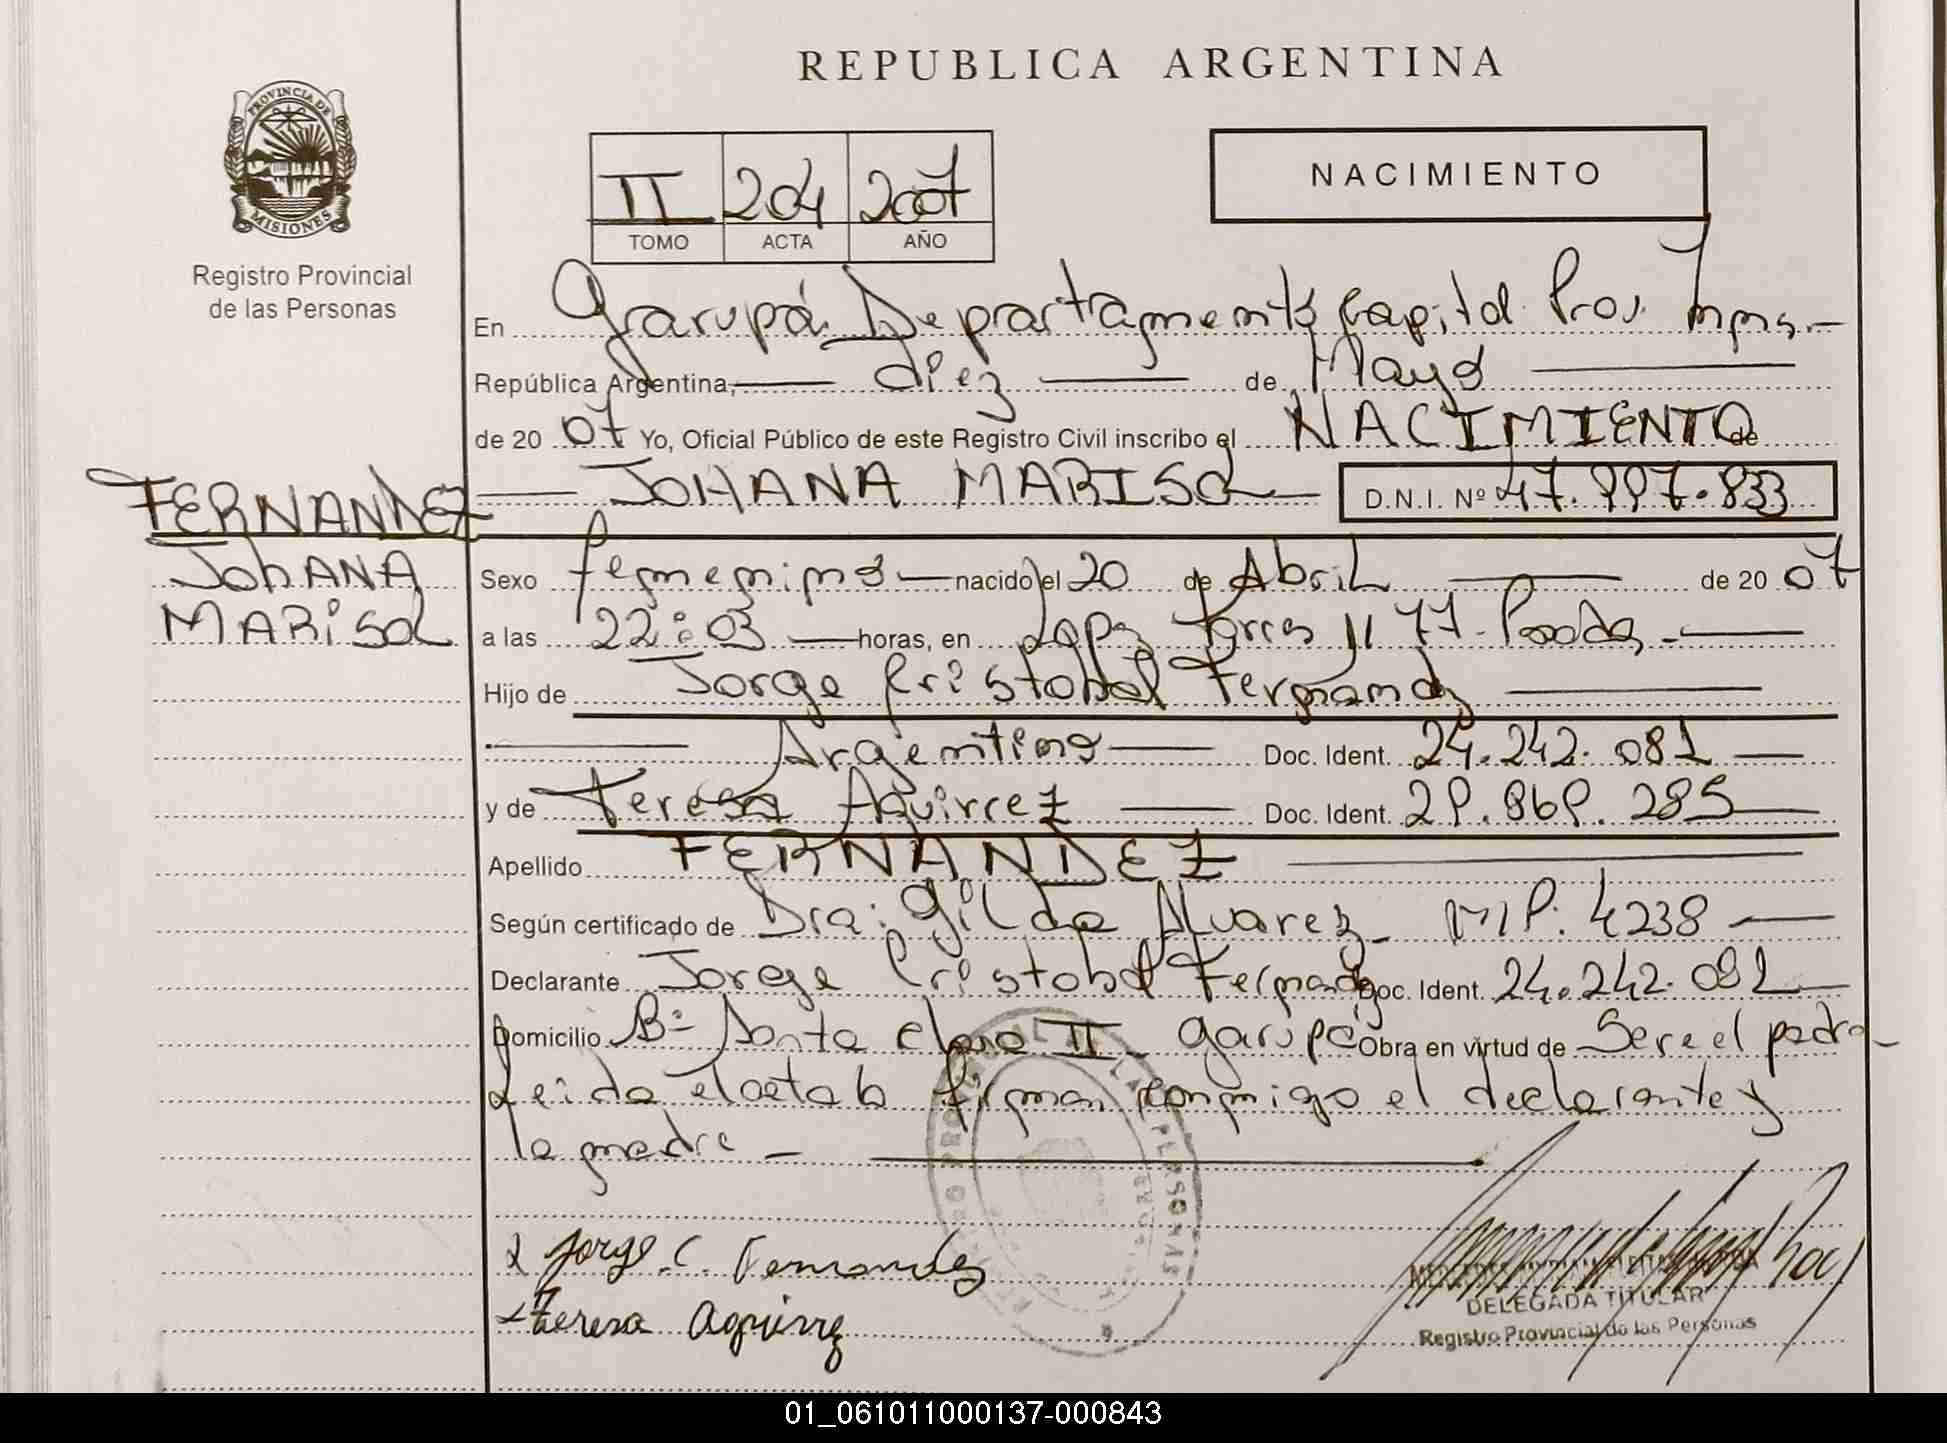 REPUBLICA ARGENTINA
PROVINCIA DE MISIONES
Registro Provincial
de las Personas
II 204 2007
TOMO ACTA AÑO
NACIMIENTO
En Garupá Departamento Capital Prov. Mnes.-
República Argentina, diez de Mayo
de 20 07 Yo, Oficial Público de este Registro Civil inscribo el NACIMIENTO de
JOHANA MARISOL D.N.I. Nº 47.997.833
FERNANDEZ
JOhANA
MARiSOL
Sexo femenino nacido el 20 de Abril de 20 07
a las 22:03 horas, en Lopez Torres 1177- Posadas.-
Hijo de Jorge Cristobal Fernandez
Argentino Doc. Ident. 24.242.081
y de Teresa Aguirrez Doc. Ident. 29.869.285
Apellido FERNANDEZ
Según certificado de Dra: Gilda Alvarez- MP: 4238
Declarante Jorge Cristobal Fernandez Doc. Ident. 24.242.081
Domicilio Bº Santa Clara II- Garupá Obra en virtud de Ser el padre-
Leida el acta la firman conmigo el declarante y
la madre-
Jorge C. Fernandez
Teresa Aguirrez
DELEGADA TITULAR
Registro Provincial de las Personas
01_061011000137-000843